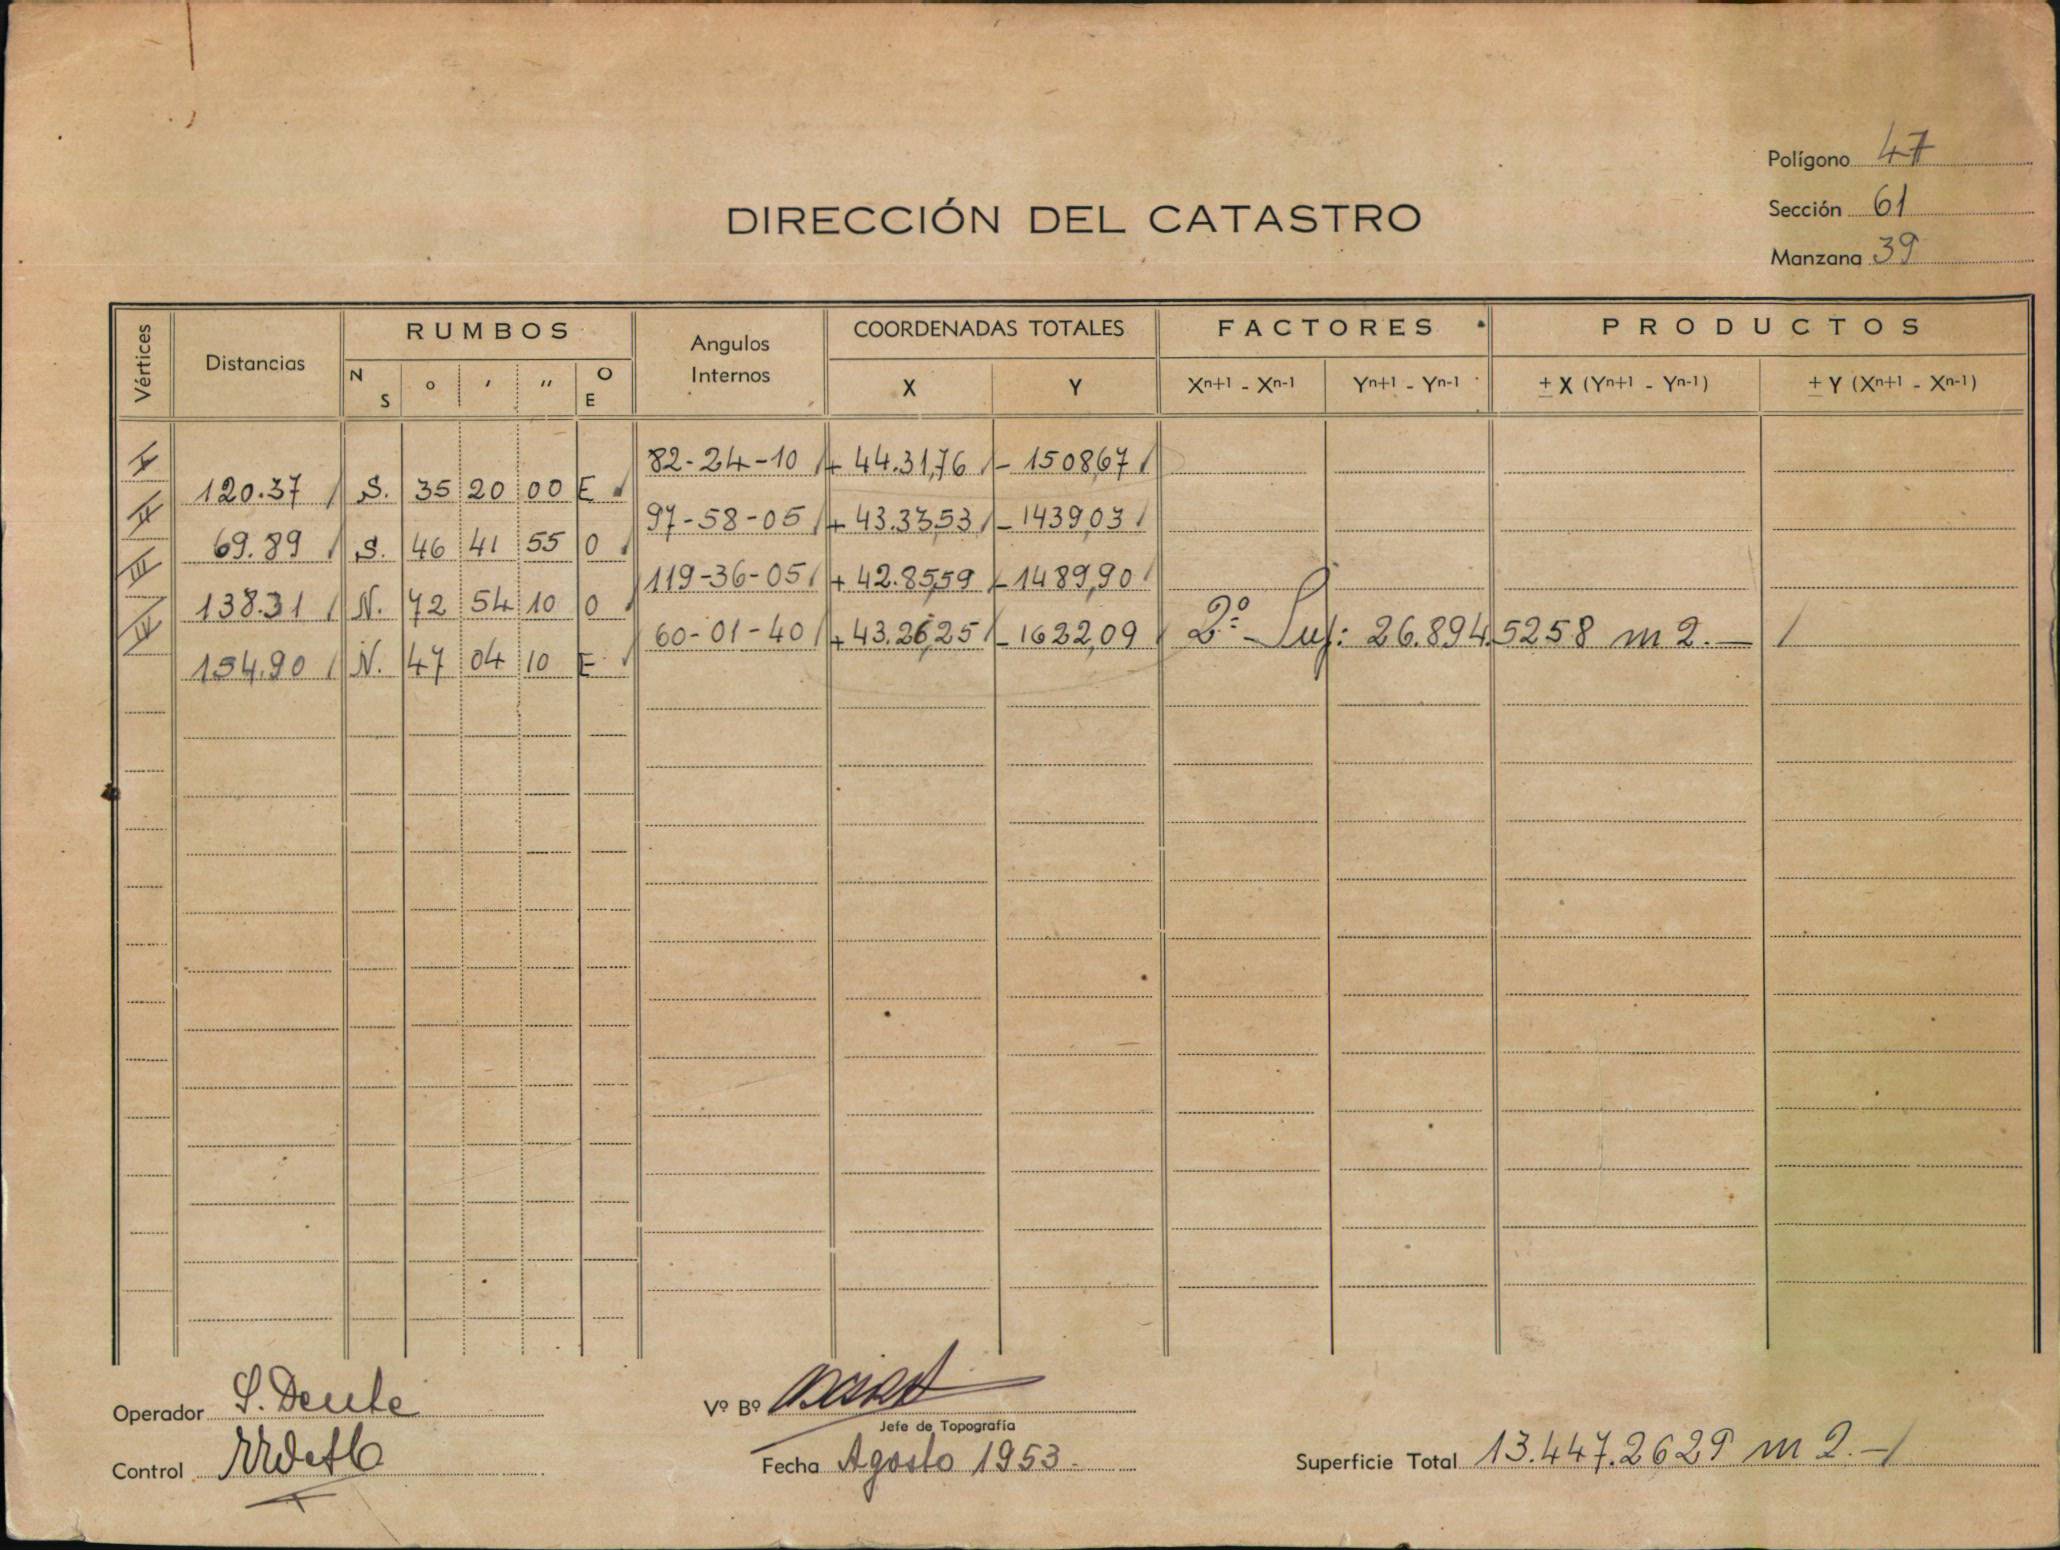 Polígono 47
DIRECCIÓN DEL CATASTRO
Sección 61
Manzana 39
Vértices Distancias RUMBOS Angulos Internos COORDENADAS TOTALES FACTORES PRODUCTOS
N S o ' '' O E X Y Xn+1 - Xn-1 Yn+1 - Yn-1 ± X (Yn+1 - Yn-1) ± Y (Xn+1 - Xn-1)
I 82-24-10 + 44.31,76 - 1508,67
120.37 S. 35 20 00 E
II 97-58-05 + 43.33,53 - 1439,03
69.89 S. 46 41 55 O
III 119-36-05 + 42.85,59 - 1489,90
138.31 N. 72 54 10 O
IV 60-01-40 + 43.26,25 - 1622,09 2º Sup: 26.894.5258 m2.—
154.90 N. 47 04 10 E
Operador S. Dente Vº Bº
Jefe de Topografía
Control Fecha Agosto 1953. Superficie Total 13.447.2629 m2.—